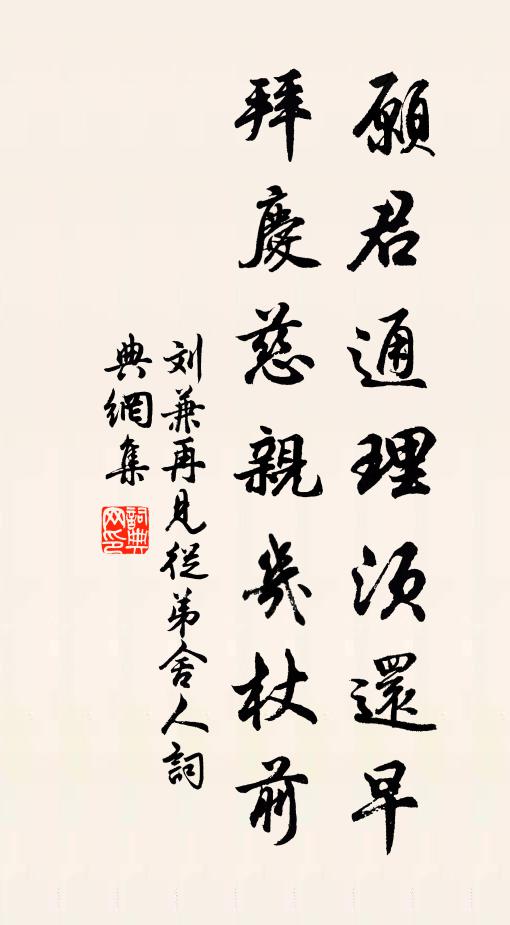 願君通理須還早
拜慶慈親幾杖前
刘兼再見從弟舍人詞
典網集
詞典
网印